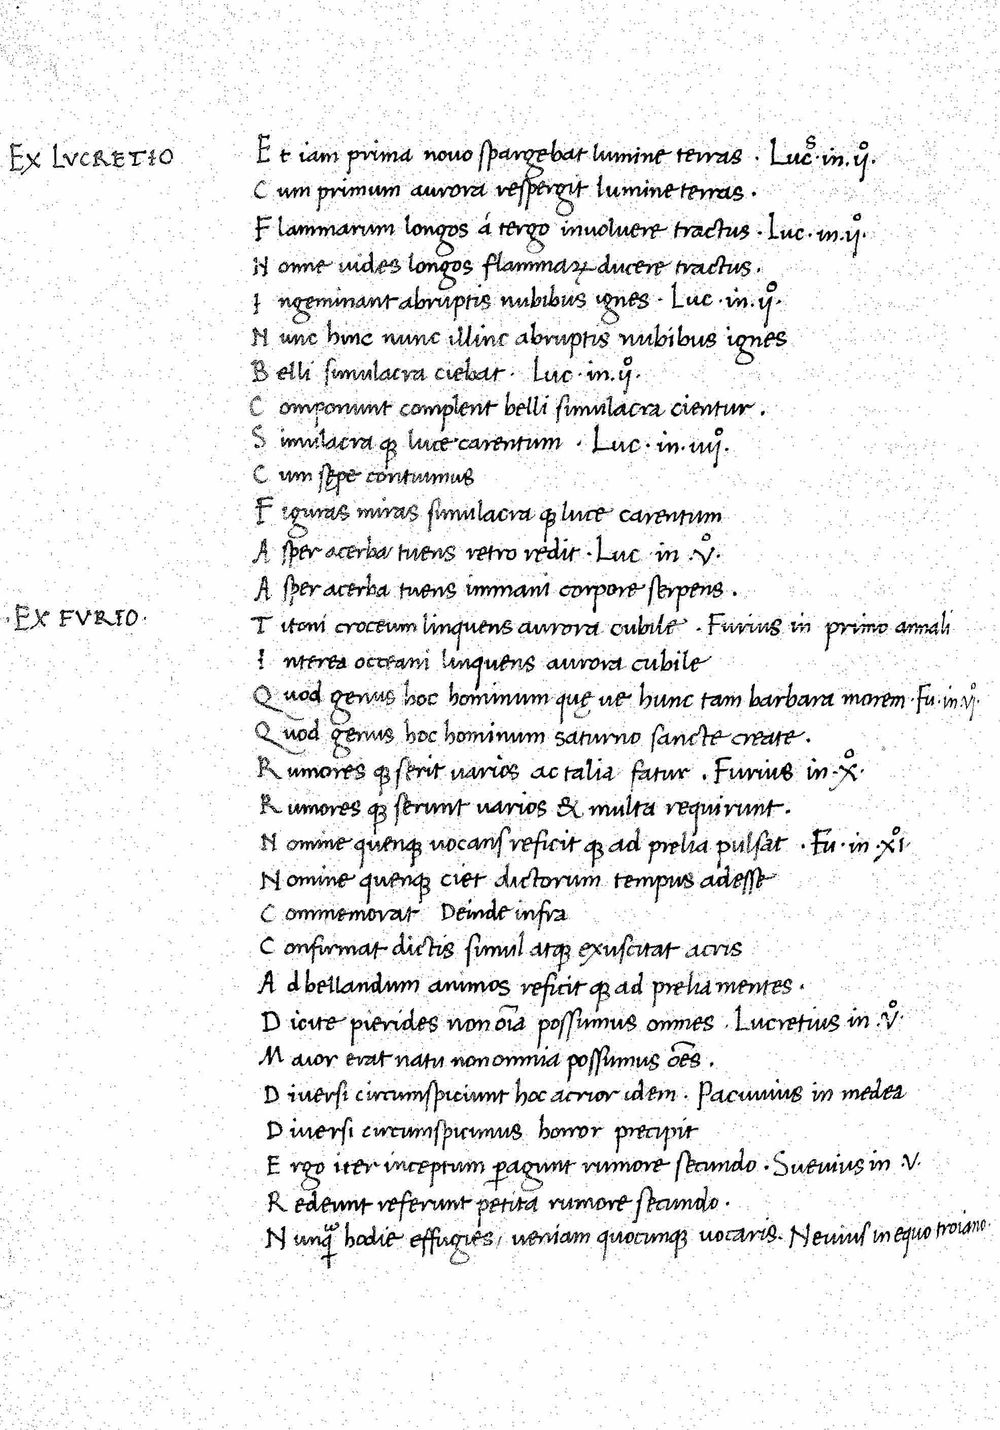 Ex Lvcretio
Et iam prima nouo spargebat lumine terras . Luc̃s. in. ijº.
Cum primum aurora respergit lumine terras .
Flammarum longos á tergo inuoluere tractus . Luc . in. ijº.
Nonne uides longos flammaꝝ ducere tractus .
Ingeminant abruptis nubibus ignes . Luc . in. ijº.
Nunc hinc nunc illinc abruptis nubibus ignes
Belli simulacra ciebat . Luc . in. ijº.
Componunt complent belli simulacra cientur .
Simulacra qꝫ luce carentum . Luc . in. iiijº.
Cum sępe contuimus
Figuras miras simulacra qꝫ luce carentum
Asper acerba tuens retro redit . Luc in .vº.
Asper acerba tuens immani corpore serpens .
.Ex fvrio.
Titoni croceum linquens aurora cubile . Furius in primo annali
Interea occeani linquens aurora cubile
Quod genus hoc hominum quę ue hunc tam barbara morem . Fu . in. vjº.
Quod genus hoc hominum saturno sancte create .
Rumores qꝫ serit uarios ac talia fatur . Furius in .xº.
Rumores qꝫ serunt uarios & multa requirunt .
Nomine quenqꝫ uocans reficit qꝫ ad prelia pulsat . Fu . in .xıº.
Nomine quenqꝫ ciet dictorum tempus adesse
Commemorat Deinde infra
Confirmat dictis simul atqꝫ exuscitat acris
Ad bellandum animos reficit qꝫ ad prelia mentes .
Dicite pierides non oı̃a possumus omnes . Lucretius in .vº.
Maior erat natu non omnia possumus oẽs .
Diuersi circumspiciunt hoc acrior idem . Pacuuius in medea
Diuersi circumspicimus horror precipit
Ergo iter inceptum ꝑagunt rumore secundo . Sueuius in .v.
Redeunt referunt petita rumore secundo .
Nunqͣꝫ hodie effugies, ueniam quocunqꝫ uocaris . Neuius in equo troiano .